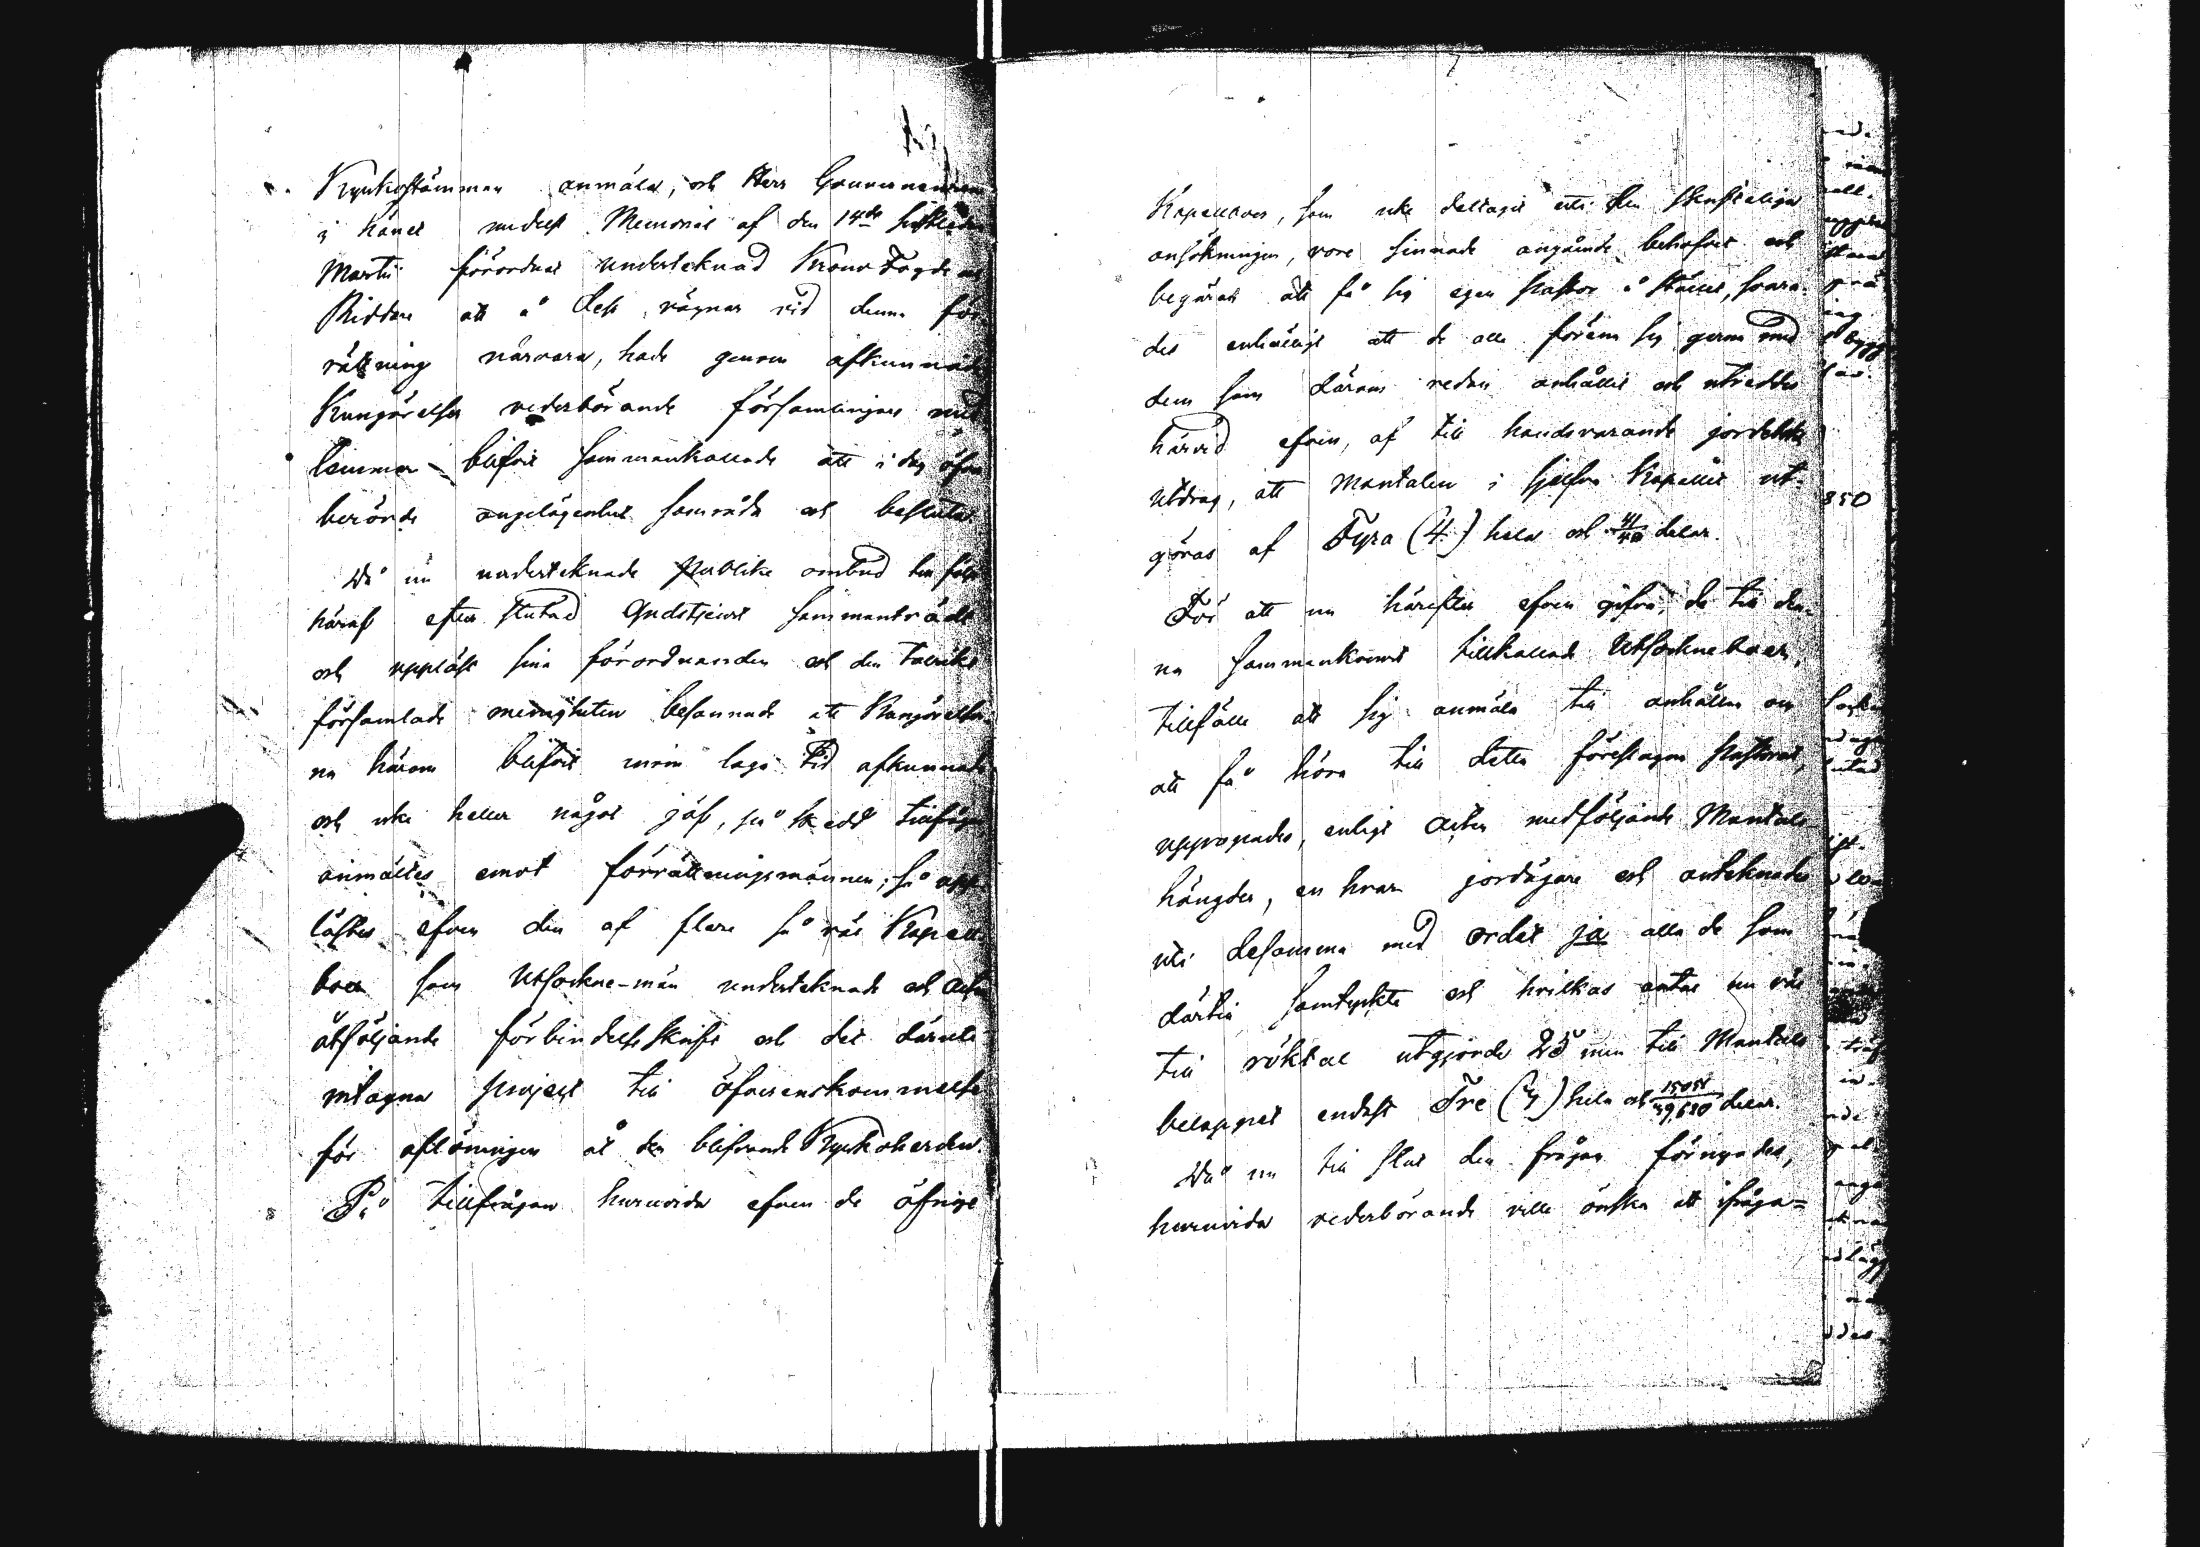 Kyrkostämman anmäla, och Herr Gouverneuren
i Länet medelst Memorial af den 14de sistledne
Martii förordnat undertecknad Krono Fogde och
Riddare att å dess vägnar vid denna för-
rättning närvara, hade genom afkunnade
Kungörelser vederbörande församlingars med-
lemmar blifvit sammankallade att i dag öfver
berörde angelägenhet samråda och besluta.
Då nu undertecknade publike ombud till följe
häraf efter slutad Gudstjenst sammanträdt
och uppläst sina förordnanden och den talrikt
församlade menigheten besannade att Kungörelser-
na härom blifvit inom laga tid afkunnade
och icke heller något jäf, på skedd tillfrågan
anmältes emot förrättningsmännen; så upp-
lästes efven den af flere så väl Kapell-
boer som Utsockne-män undertecknade och Acten
åtföljande förbindelseskrift och det däruti
intagna project till öfverenskommelse
för aflöningen åt den blifvande Kyrkoherden.
På tillfrågan huruvida efven de öfrige
Kapellboer, som icke deltagit uti den skriftliga
ansökningen, vore sinnade angående behofvet och
begäran att få sig egen Pastor i stället, svara-
des enhälligt att de alla förena sig gerna med
dem som därom redan anhållit och utreddes
härvid efven, af till handsvarande jordeboks
utdrag, att mantalen i sjelfva Kapellet ut-
göras af Fyra (4) hela och 41/40 delar.
För att nu härefter efven gifva, de till den-
na sammankomst tillkallade Utsockneboer,
tillfälle att sig anmäla till anhållan om
att få höra till detta föreslagna Pastorat,
uppropades, enligt Acten medföljande Mantals-
längder, en hvar jordägare och antecknades
uti desamma med ordet ja alla de som
därtill samtyckte och hvilkas antal nu väl
till röktal utgjorde 25 men till Mantals
beloppet endast Tre (3) hela och delar.
Då nu till slut den frågan förnyades,
huruvida vederbörande ville önska att ifråga=
850